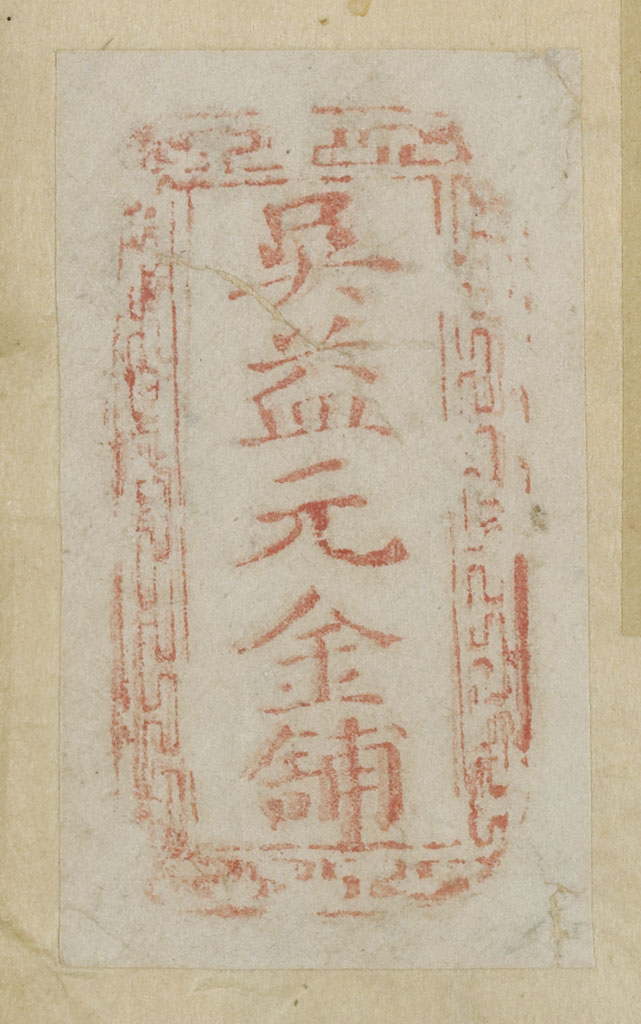 吳益元金舖